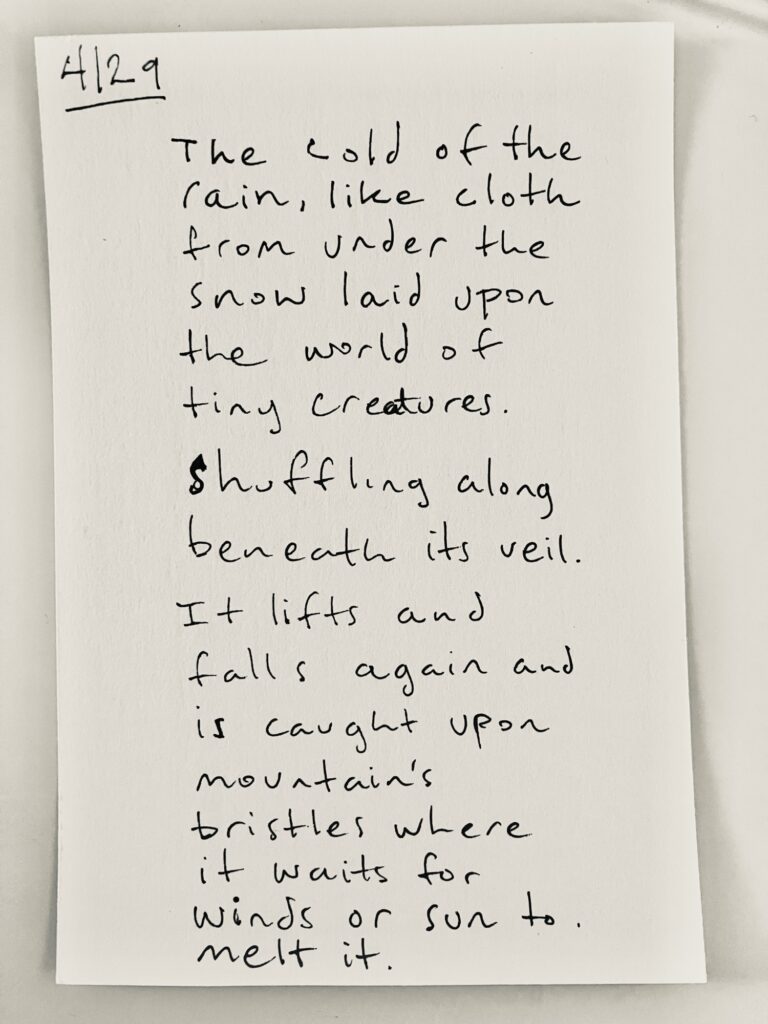 4/29
The cold of the
rain, like cloth
from under the
snow laid upon
the world of
tiny creatures.
Shuffling along
beneath its veil.
It lifts and
falls again and
is caught upon
mountain's
bristles where
it waits for
winds or sun to.
melt it.